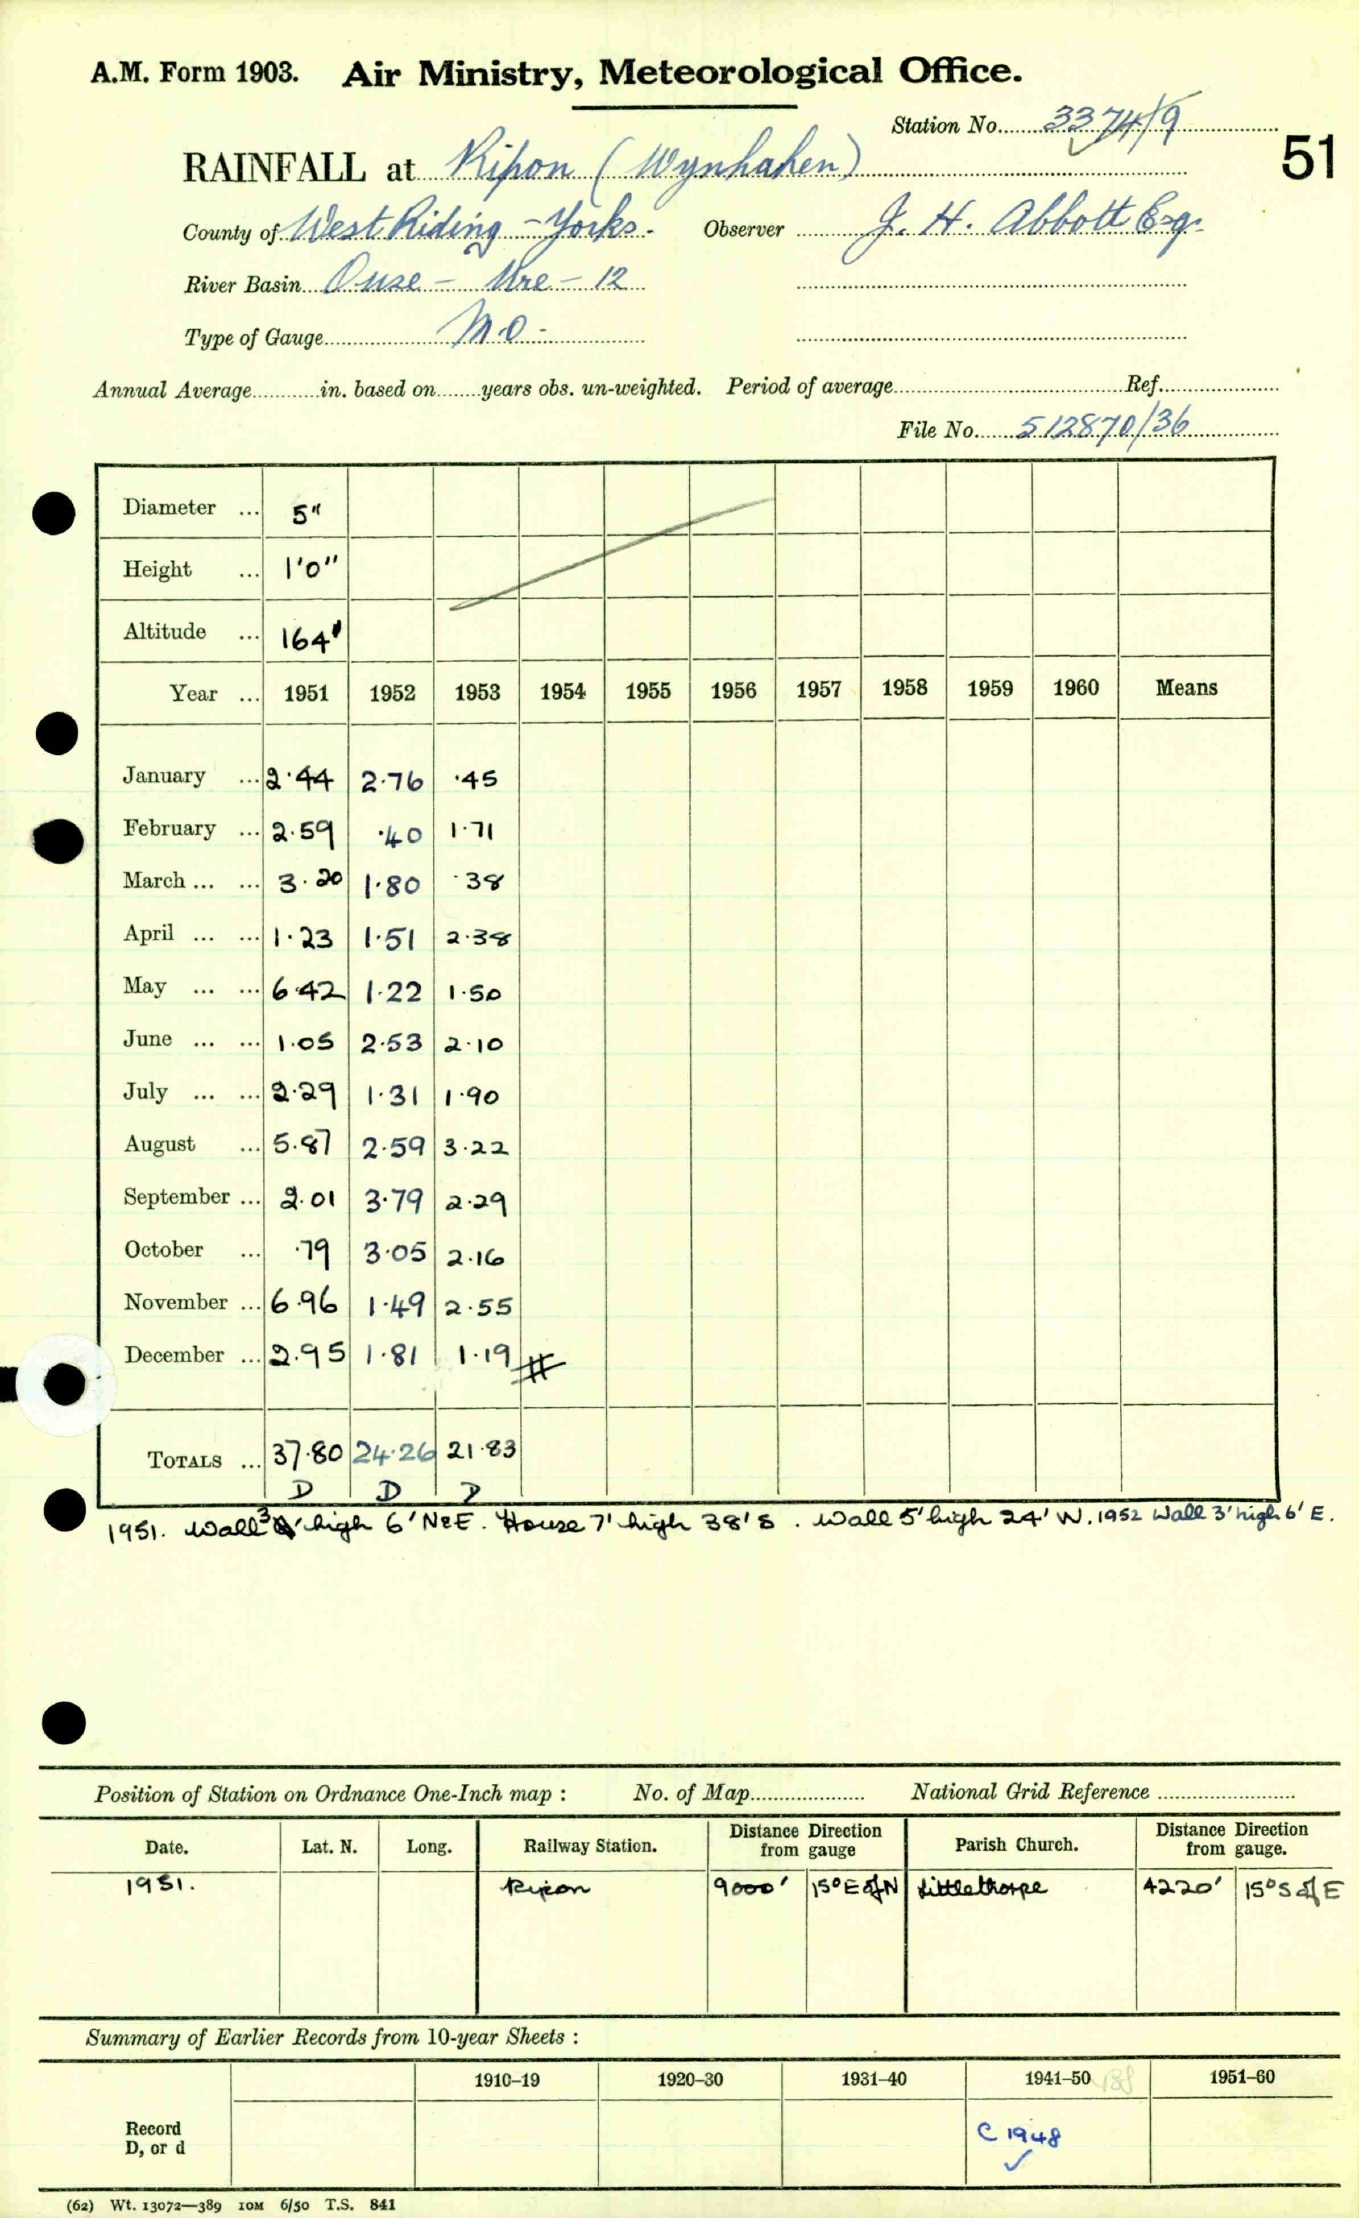 A.M. Form 1903. Air Ministry, Meteorological Office.
Station No. 3374/9
51
RAINFALL at Ripon (Wynhahen)
County of West Riding - Yorks. Observer J. H. Abbott Esq.
River Basin Ouse - Ure - 12
Type of Gauge M.O.
Annual Average in. based on years obs. un-weighted. Period of average Ref.
File No. 512870/36
Diameter ... 5"
Height ... 1'0"
Altitude ... 164'
Year ... 1951 1952 1953 1954 1955 1956 1957 1958 1959 1960 Means
January ... 2.44 2.76 .45
February ... 2.59 .40 1.71
March ... ... 3.20 1.80 .38
April ... ... 1.23 1.51 2.38
May ... ... 6.42 1.22 1.50
June ... ... 1.05 2.53 2.10
July ... ... 2.29 1.31 1.90
August ... 5.87 2.59 3.22
September ... 2.01 3.79 2.29
October ... .79 3.05 2.16
November ... 6.96 1.49 2.55
December ... 2.95 1.81 1.19 #
TOTALS ... 37.80 24.26 21.83
D D D
1951. Wall 3' high 6' N&E. House 7' high 38' S. Wall 5' high 24' W. 1952 Wall 3' high 6' E.
Position of Station on Ordnance One-Inch map : No. of Map National Grid Reference
Date. Lat. N. Long. Railway Station. Distance Direction from gauge Parish Church. Distance Direction from gauge.
1951. Ripon 9000' 15° E of N Littlethorpe 4220' 15° S of E
Summary of Earlier Records from 10-year Sheets :
1910–19 1920–30 1931–40 1941–50 1951–60
Record
D, or d
C 1948
(62) Wt. 13072—389 10M 6/50 T.S. 841